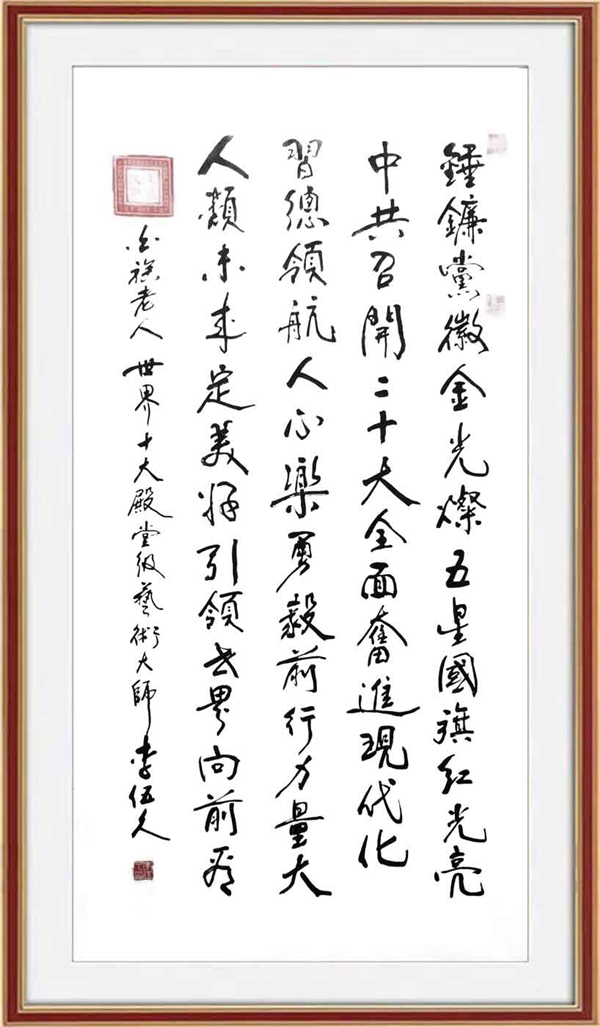 錘鐮黨徽金光燦五星國旗紅光亮
中共召開二十大全面奮進現代化
習總領航人心樂勇毅前行力量大
人類未來定美好引領世界向前看
白族老人世界十大殿堂級藝術大師李伍久